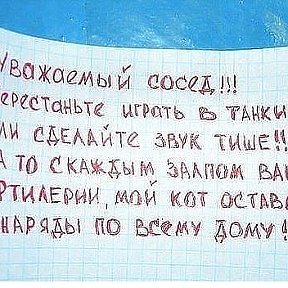 Уважаемый сосед!!!
ерестаньте играть в танки
ли сделайте звук тише!!
А то с каждым залпом ва
ртилерии, мой кот остав
наряды по всему дому!